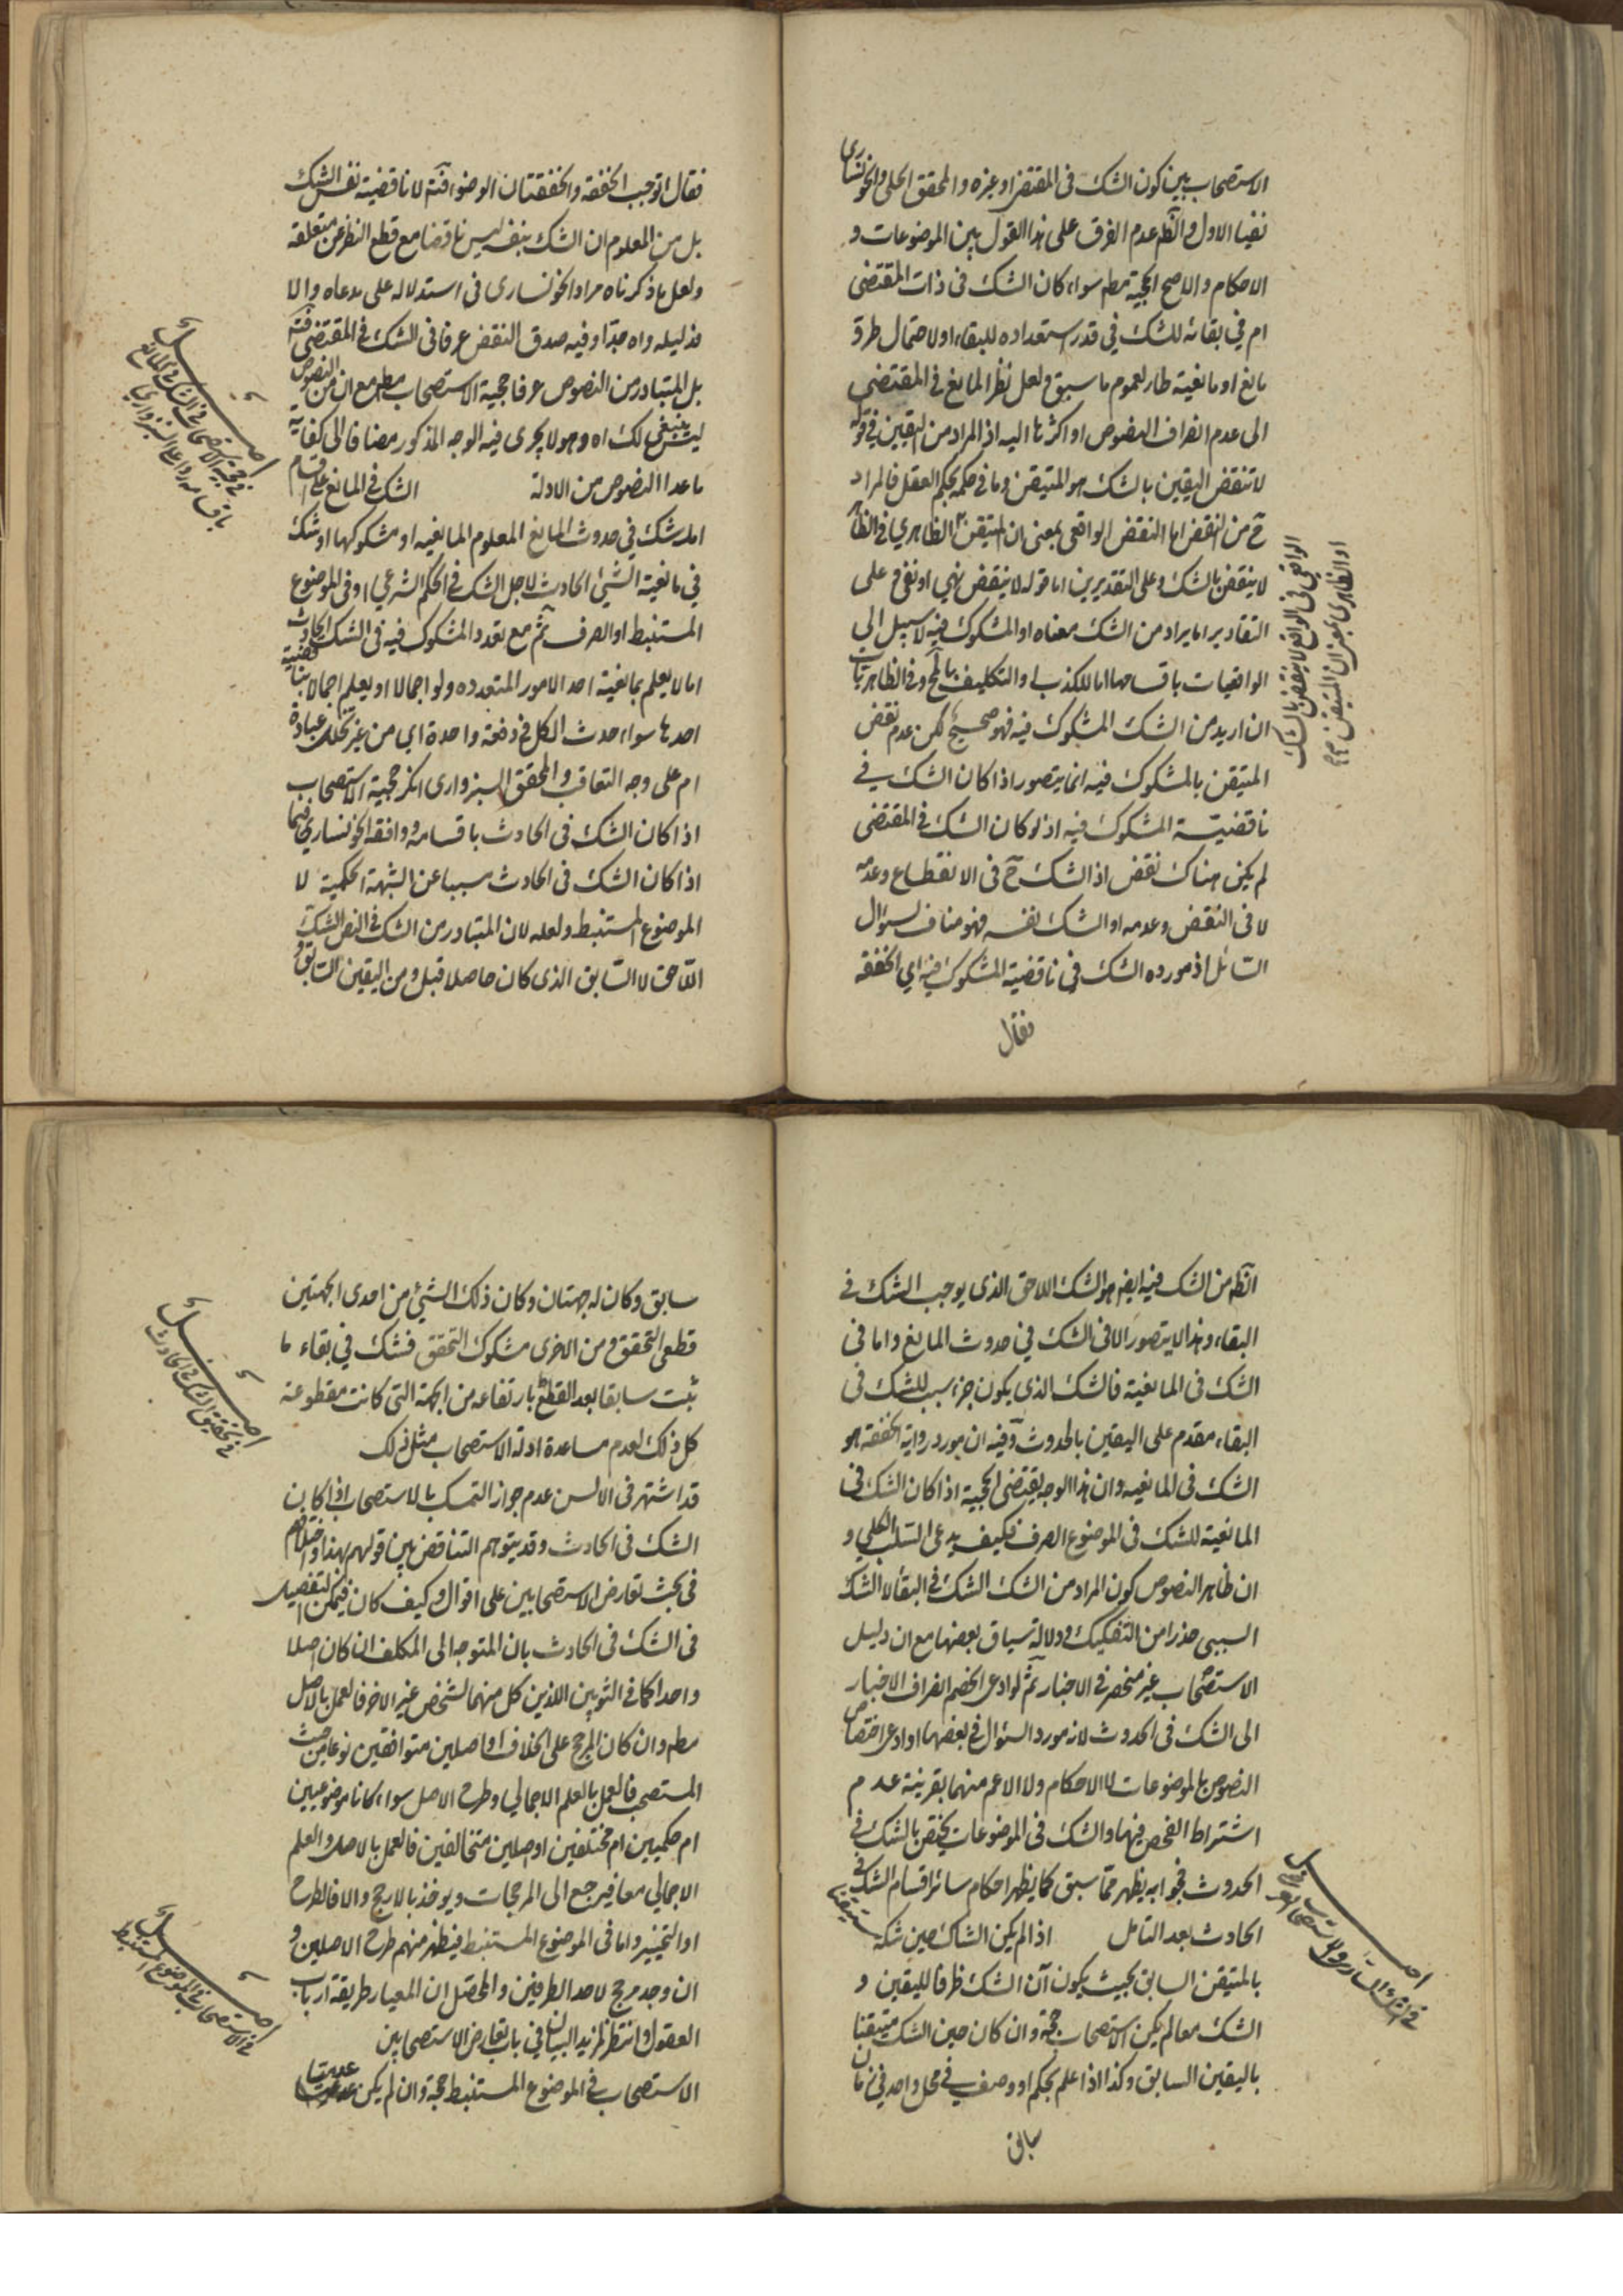 الاستصحاب بين كون الشك فى المقتضى او غيره و المحقق الحلى و الخونسارى
نفيا الاول و الظ عدم الفرق على هذا القول بين الموضوعات و
الاحكام و الاصح الحجية مطم سواء كان الشك فى ذات المقتضى
ام فى بقائه للشك فى قدر استعداده للبقاء او لاحتمال طرو
مانع او مانعية طار لعموم ما سبق و لعل نظر المانع فى المقتضى
الى عدم انصراف النصوص او اكثرها اليه اذ المراد من اليقين فى قوله
لا تنقض اليقين بالشك هو المتيقن و ما فى حكمه بحكم العقل فالمراد
ح من النقض اما النقض الواقعى بمعنى ان المتيقن الظاهري فى الظاهر
لا ينقض بالشك و على التقديرين اما قوله لا ينقض نهي او نفى و على
التقادير اما يراد من الشك معناه او المشكوك فيه لا سبيل الى
الواقعيات باقسامها اما للكذب او التكليف بالمح و فى الظاهريات
ان اريد من الشك المشكوك فيه فهو صحيح لكن عدم نقض
المتيقن بالمشكوك فيه انما يتصور اذا كان الشك فى
ناقضية المشكوك فيه اذ لو كان الشك فى المقتضى
لم يكن هناك نقض اذ الشك ح فى الانقطاع و عدمه
لا فى النقض و عدمه او الشك نفسه فهو مناف لسؤال
السائل اذ مورده الشك فى ناقضية المشكوك فيه اي الخفقة
فقال
الواقعي فى الواقع لا ينقض بالشك
او الظاهرى بمعنى ان المتيقن
فقال اتوجب الخفقة و الخفقتان الوضوء فته لا ناقضية نفس الشك
بل من المعلوم ان الشك بنفسه ليس ناقضا مع قطع النظر عن متعلقه
و لعل ما ذكرناه مراد الخونسارى فى استدلاله على مدعاه و الا
فدليله واه جدا و فيه صدق النقض عرفا فى الشك فى المقتضى فته
بل المتبادر من النصوص عرفا حجية الاستصحاب مطم مع ان من النصوص
ليس ينبغى لك اه و هو لا يجرى فيه الوجه المذكور مضافا الى كفاية
ما عدا النصوص من الادلة الشك فى المانع على اقسام
اما شك فى حدوث المانع المعلوم المانعيه او مشكوكها او شك
فى مانعية الشيء الحادث لاجل الشك فى الحكم الشرعي او فى الموضوع
المستنبط او الصرف ثم مع تعدد المشكوك فيه فى الشك الحادث
اما لا يعلم بمانعية احد الامور المتعدده و لو اجمالا او يعلم اجمالا بناقضية
احدها سواء حدث الكل فى دفعة واحدة اي من غير تخلل عبادة
ام على وجه التعاقب و المحقق السبزوارى انكر حجية الاستصحاب
اذا كان الشك فى الحادث باقسامه و وافقه الخونساري فيما
اذا كان الشك فى الحادث سببا عن الشبهة الحكمية لا
الموضوع المستنبط و لعله لان المتبادر من الشك فى النص الشك
اللاحق لا السابق الذى كان حاصلا قبل و من اليقين السابق و
اصل
فى حجية الاستصحاب فى الشك فى المانع
باقسامه
الظ من الشك فيه ايضا هو الشك اللاحق الذى يوجب الشك فى
البقاء و هذا لا يتصور الا فى الشك فى حدوث المانع و اما فى
الشك فى المانعية فالشك الذى يكون جزء سبب للشك فى
البقاء مقدم على اليقين بالحدوث و فيه ان مورد رواية الخفقة هو
الشك فى المانعيه و ان هذا الوجه يقتضى الحجية اذا كان الشك فى
المانعية للشك فى الموضوع الصرف فكيف يدعى السلب الكلي و
ان ظاهر النصوص كون المراد من الشك الشك فى البقاء لا الشك
السببى حذرا من التفكيك و دلالة سياق بعضها مع ان دليل
الاستصحاب غير منحصر فى الاخبار ثم لو ادعى الخصم انصراف الاخبار
الى الشك فى الحدوث لانه مورد السؤال فى بعضها او ادعى اختصاص
النصوص بالموضوعات لا الاحكام و لا الاعم منهما بقرينة عدم
اشتراط الفحص فيها و الشك فى الموضوعات يختص بالشك فى
الحدوث فجوابه يظهر مما سبق كما يظهر احكام سائر اقسام الشك فى
الحادث بعد التامل اذا لم يكن الشاك حين شكه متيقنا
بالمتيقن السابق بحيث يكون آن الشك ظرفا لليقين و
الشك معا لم يكن الاستصحاب حجة و ان كان حين الشك متيقنا
باليقين السابق و كذا اذا علم بحكم او وصف فى محل واحد فى زمان
سابق
اصل
فى الشك السارى و الاستصحاب
سابق و كان له جهتان و كان ذلك الشيء من احدى الجهتين
قطعى التحقق و من الاخرى مشكوك التحقق فشك فى بقاء ما
ثبت سابقا بعد القطع بارتفاعه من الجهة التى كانت مقطوعة
كل ذلك لعدم مساعدة ادلة الاستصحاب مثل ذلك
قد اشتهر فى الالسن عدم جواز التمسك بالاستصحاب اذا كان
الشك فى الحادث و قد يتوهم التناقض بين قولهم بهذا و اختلافهم
فى بحث تعارض الاستصحابين على اقوال و كيف كان فيمكن التفصيل
فى الشك فى الحادث بان المتوجه الى المكلف ان كان اصلا
واحدا كما فى الثوبين اللذين كل منهما لشخص غير الاخر فالعمل بالاصل
مطم و ان كان المرجح على الخلاف او اصلين متوافقين نوعا من حيث
المستصحب فالعمل بالعلم الاجمالي و طرح الاصل سواء كانا موضوعيين
ام حكميين ام مختلفين او اصلين متخالفين فالعمل بالاصل و العلم
الاجمالي معا فيرجع الى المرجحات و يوخذ بالارجح و الا فالطرح
او التخيير و اما فى الموضوع المستنبط فيظهر منهم طرح الاصلين و
ان وجد مرجح لاحد الطرفين و المحصل ان المعيار طريقة ارباب
العقول و انتظر لمزيد البيان فى باب تعارض الاستصحابين
الاستصحاب فى الموضوع المستنبط حجة و ان لم يكن عدميا
اصل
فى تحقيق الشك فى الحادث
اصل
فى الاستصحاب فى الموضوع المستنبط